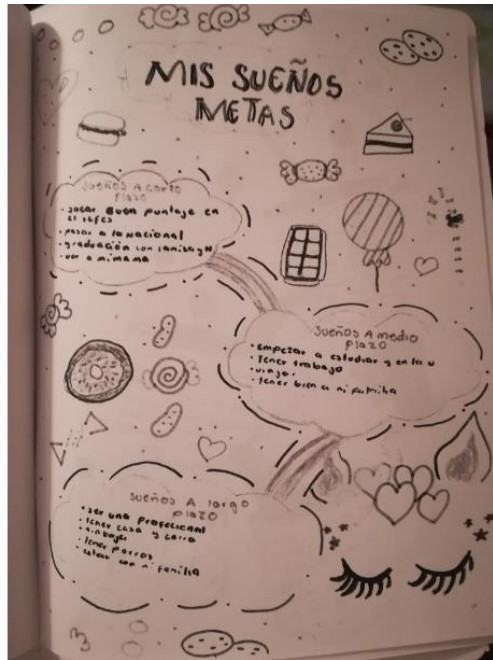 MIS SUEÑOS
METAS
SUEÑOS A corto
Plazo
• sacar Buen puntaje en
el icfes
• pasar a la nacional
• graduación con
• ver a mi mama
SUEÑOS A medio
Plazo
• empezar a estudiar y en la u
• Tener trabajo
• viajar
• tener bien a mi familia
SUEÑOS A largo
Plazo
• ser una profecional
• tener casa y carro
• tener perros
• estar con mi familia